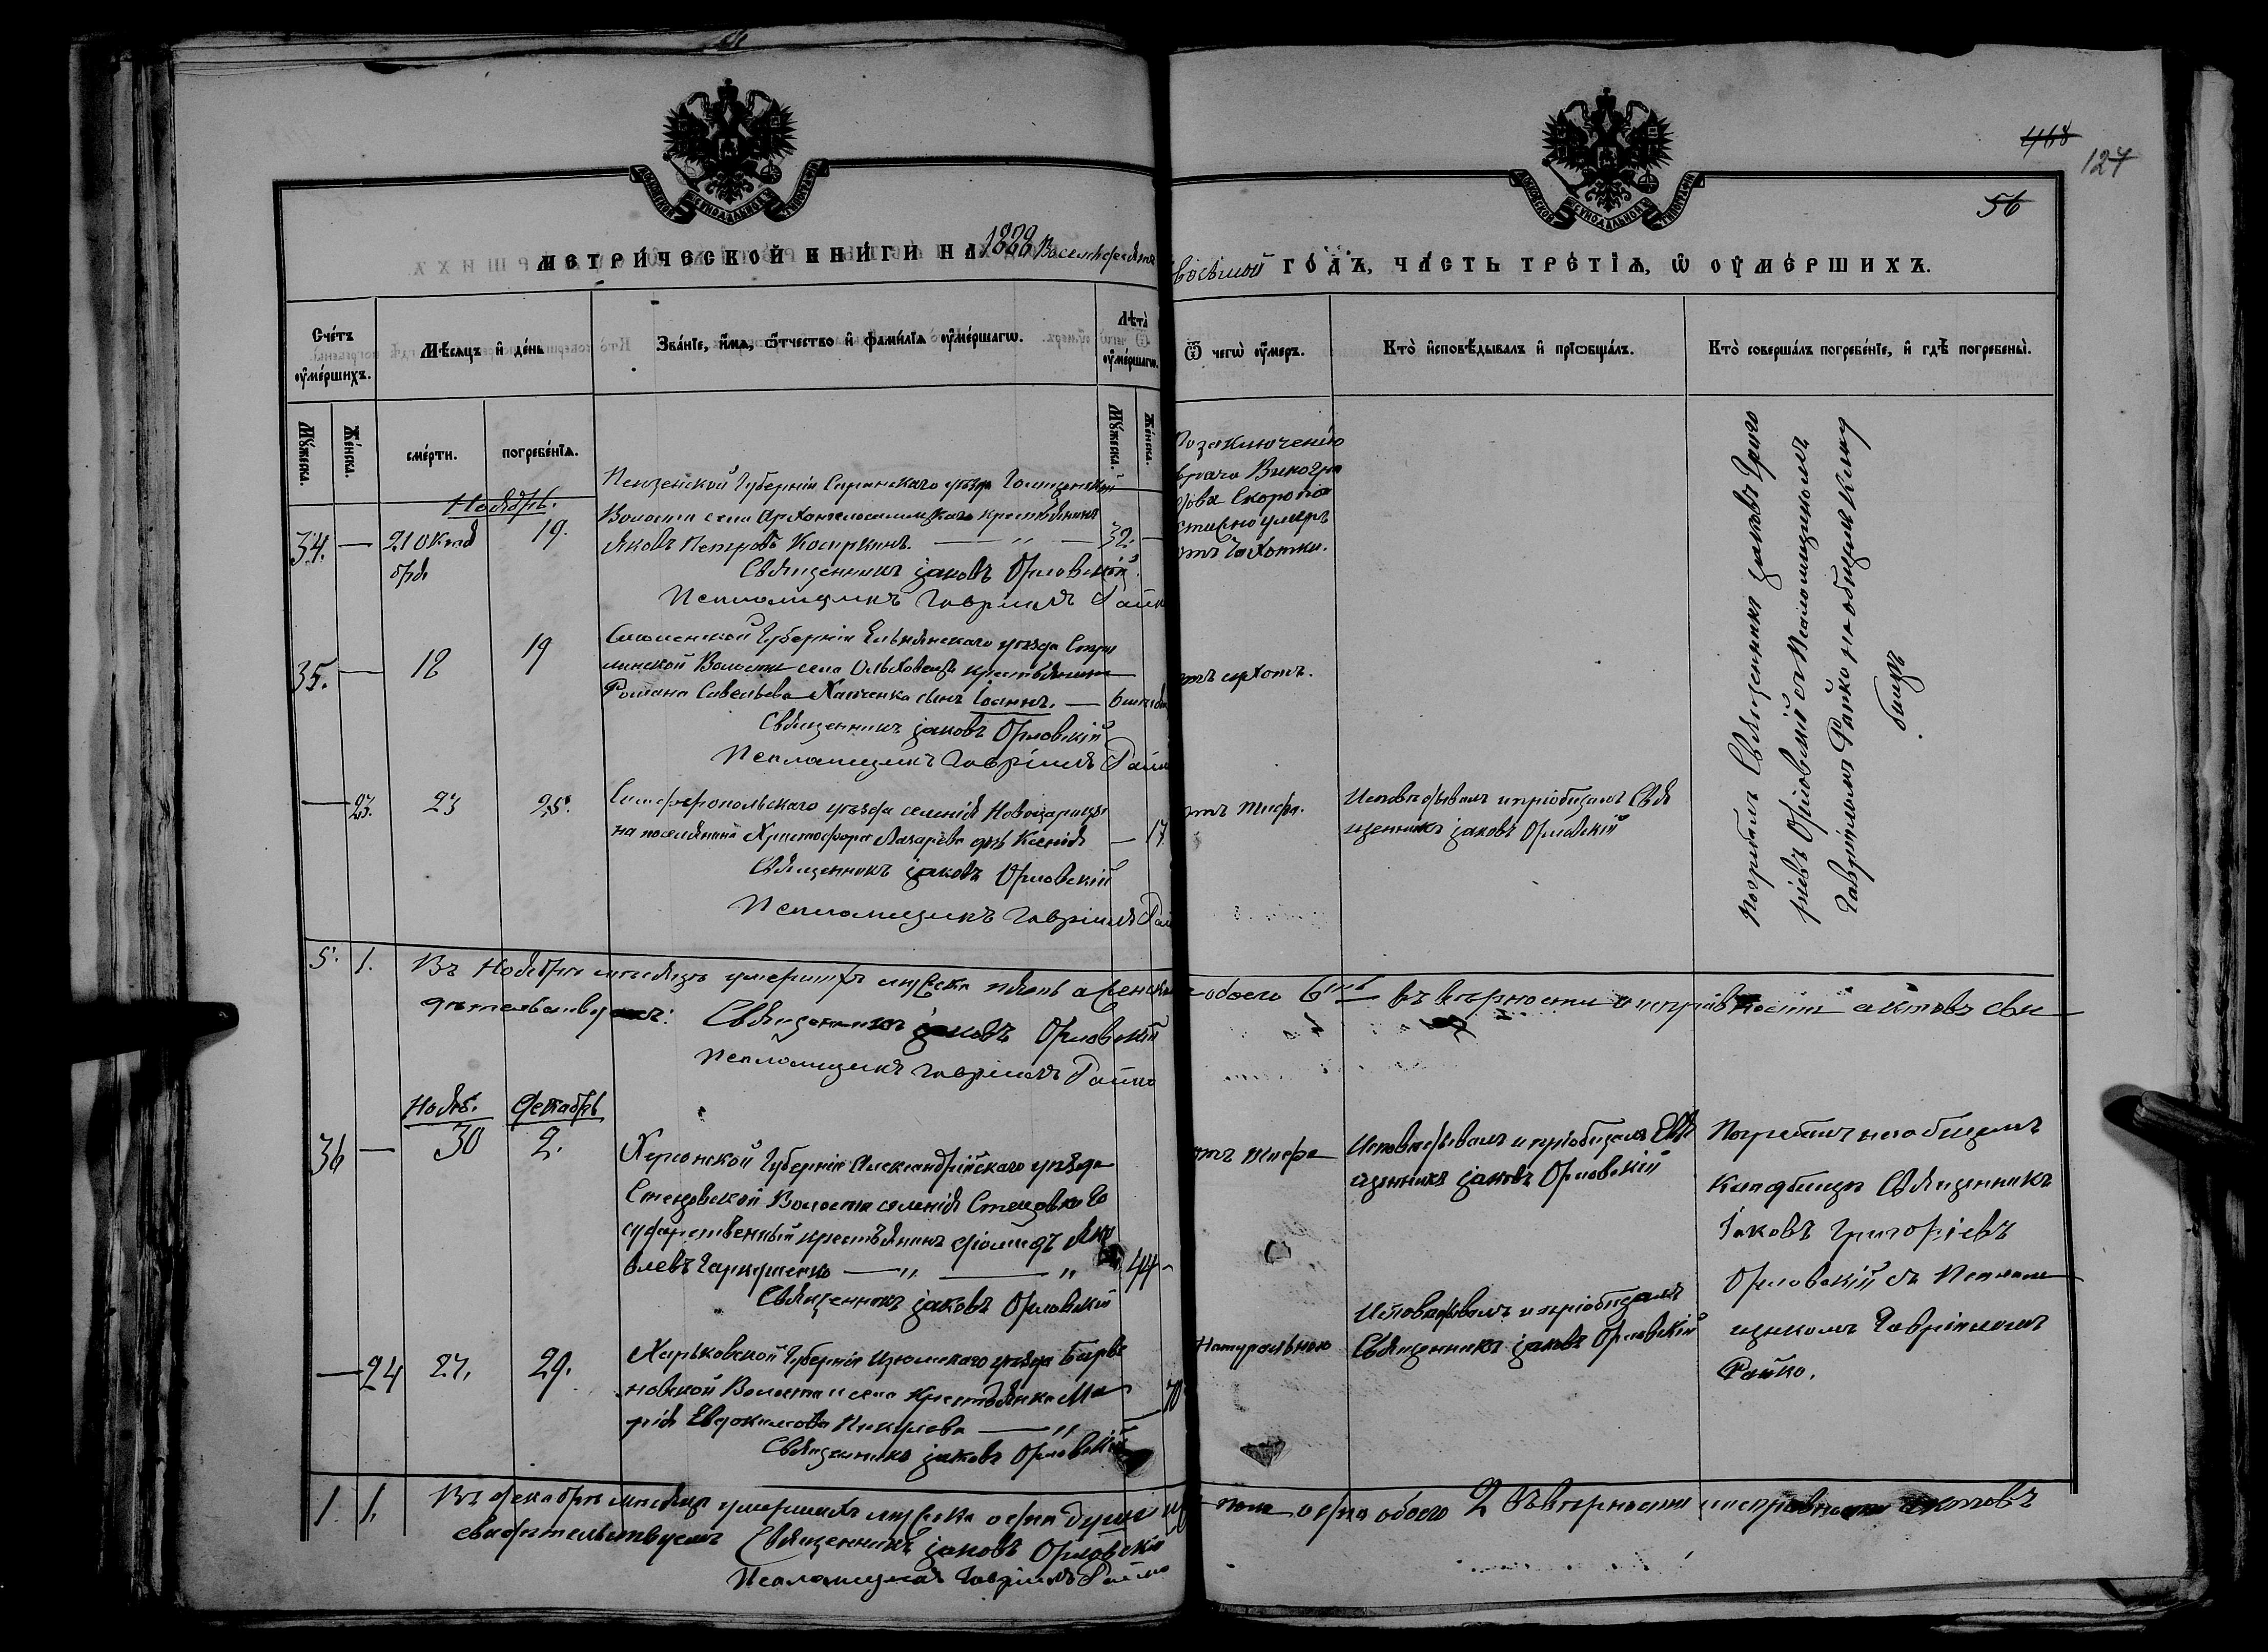 468
127
56
МЕТРИ́ЧЕСКОЙ КНИ́ГИ НА 1888 Восемьдесятъ
восьмой ГО́ДЪ, ЧА́СТЬ ТРЕ́ТІѦ, Ѡ҆ ОУ҆МЕ́РШИХЪ.
Сче́тъ оу҆ме́ршихъ.
Мѣ́сяцъ и҆ де́нь
Зва́нїе, и҆́мѧ, ѻ҆́тчество и҆ фами́лїѧ оу҆ме́ршагѡ.
Лѣта̀ оу҆ме́ршагѡ.
Ѿ чегѡ̀ оу҆́меръ.
Кто̀ и҆сповѣ́дывалъ и҆ прїѡбща́лъ.
Кто̀ соверша́лъ погребе́нїе, и҆ гдѣ̀ погребены̀.
Мꙋ́жеска.
Же́нска.
сме́рти.
погребе́нїѧ.
Мꙋ́жеска.
Же́нска.
Ноябрь.
Пензенской Губерніи Саранскаго уѣзда Голицинской
Волости села крестьянинъ
34. — 21 Октя 19. Яковъ Петровъ — " — 32. —
бря
Священникъ Іаковъ Орловскій
Псаломщикъ Гавріилъ Райко
По заключенію
врача Виногра
дова скоропо
стижно умеръ
отъ чахотки.
Погребалъ Священникъ Іаковъ Григо
ріевъ Орловскій съ Псаломщикомъ
Гавріиломъ Райко на общемъ клад
бищѣ
Смоленской Губерніи Ельнинскаго уѣзда
35. — 18 19 Волости села крестьянина
Романа Савельева сынъ Іоаннъ. — 6
Священникъ Іаковъ Орловскій
Псаломщикъ Гавріилъ Райко
— 23. 23 25. Симферопольскаго уѣзда селенія Новоцарицы
на поселянина Христофора Лазарева дочь Ксенія — 17.
Священникъ Іаковъ Орловскій
Псаломщикъ Гавріилъ Рай
отъ тифа.
Исповѣдывалъ и пріобщалъ Свя
щенникъ Іаковъ Орловскій
5. 1. Въ Ноябрѣ мѣсяцѣ умершихъ мужеска пять а женска
обоего 6ть въ вѣрности и исправности актовъ сви
дѣтельствуемъ: Священникъ Іаковъ Орловскій
Псаломщикъ Гавріилъ Райко
Нояб. Декабрь
36 — 30 2. Херсонской Губерніи Александрійскаго уѣзда
Стецовской Волости селенія Стецовки Го
сударственный крестьянинъ Діомидъ Яко
влевъ — " — " 44 -
Священникъ Іаковъ Орловскій
отъ тифа
Исповѣдывалъ и пріобщалъ Свя
щенникъ Іаковъ Орловскій
Погребенъ на общемъ
кладбищѣ Священникъ
Іаковъ Григоріевъ
Орловскій съ Псалом
щикомъ Гавріиломъ
Райко.
— 24 27. 29. Харьковской Губерніи Изюмскаго уѣзда Барве
новской Волости и села крестьянка Ма
рія Евдокимова — " — 70
Священникъ Іаковъ Орловскій
Натурально
Исповѣдывалъ и пріобщалъ
Священникъ Іаковъ Орловскій
1. 1. Въ Декабрѣ мѣсяцѣ умершихъ мужеска одна душа
одна обоего 2 въ вѣрности и исправности актовъ
свидѣтельствуемъ Священникъ Іаковъ Орловскій
Псаломщикъ Гавріилъ Райко